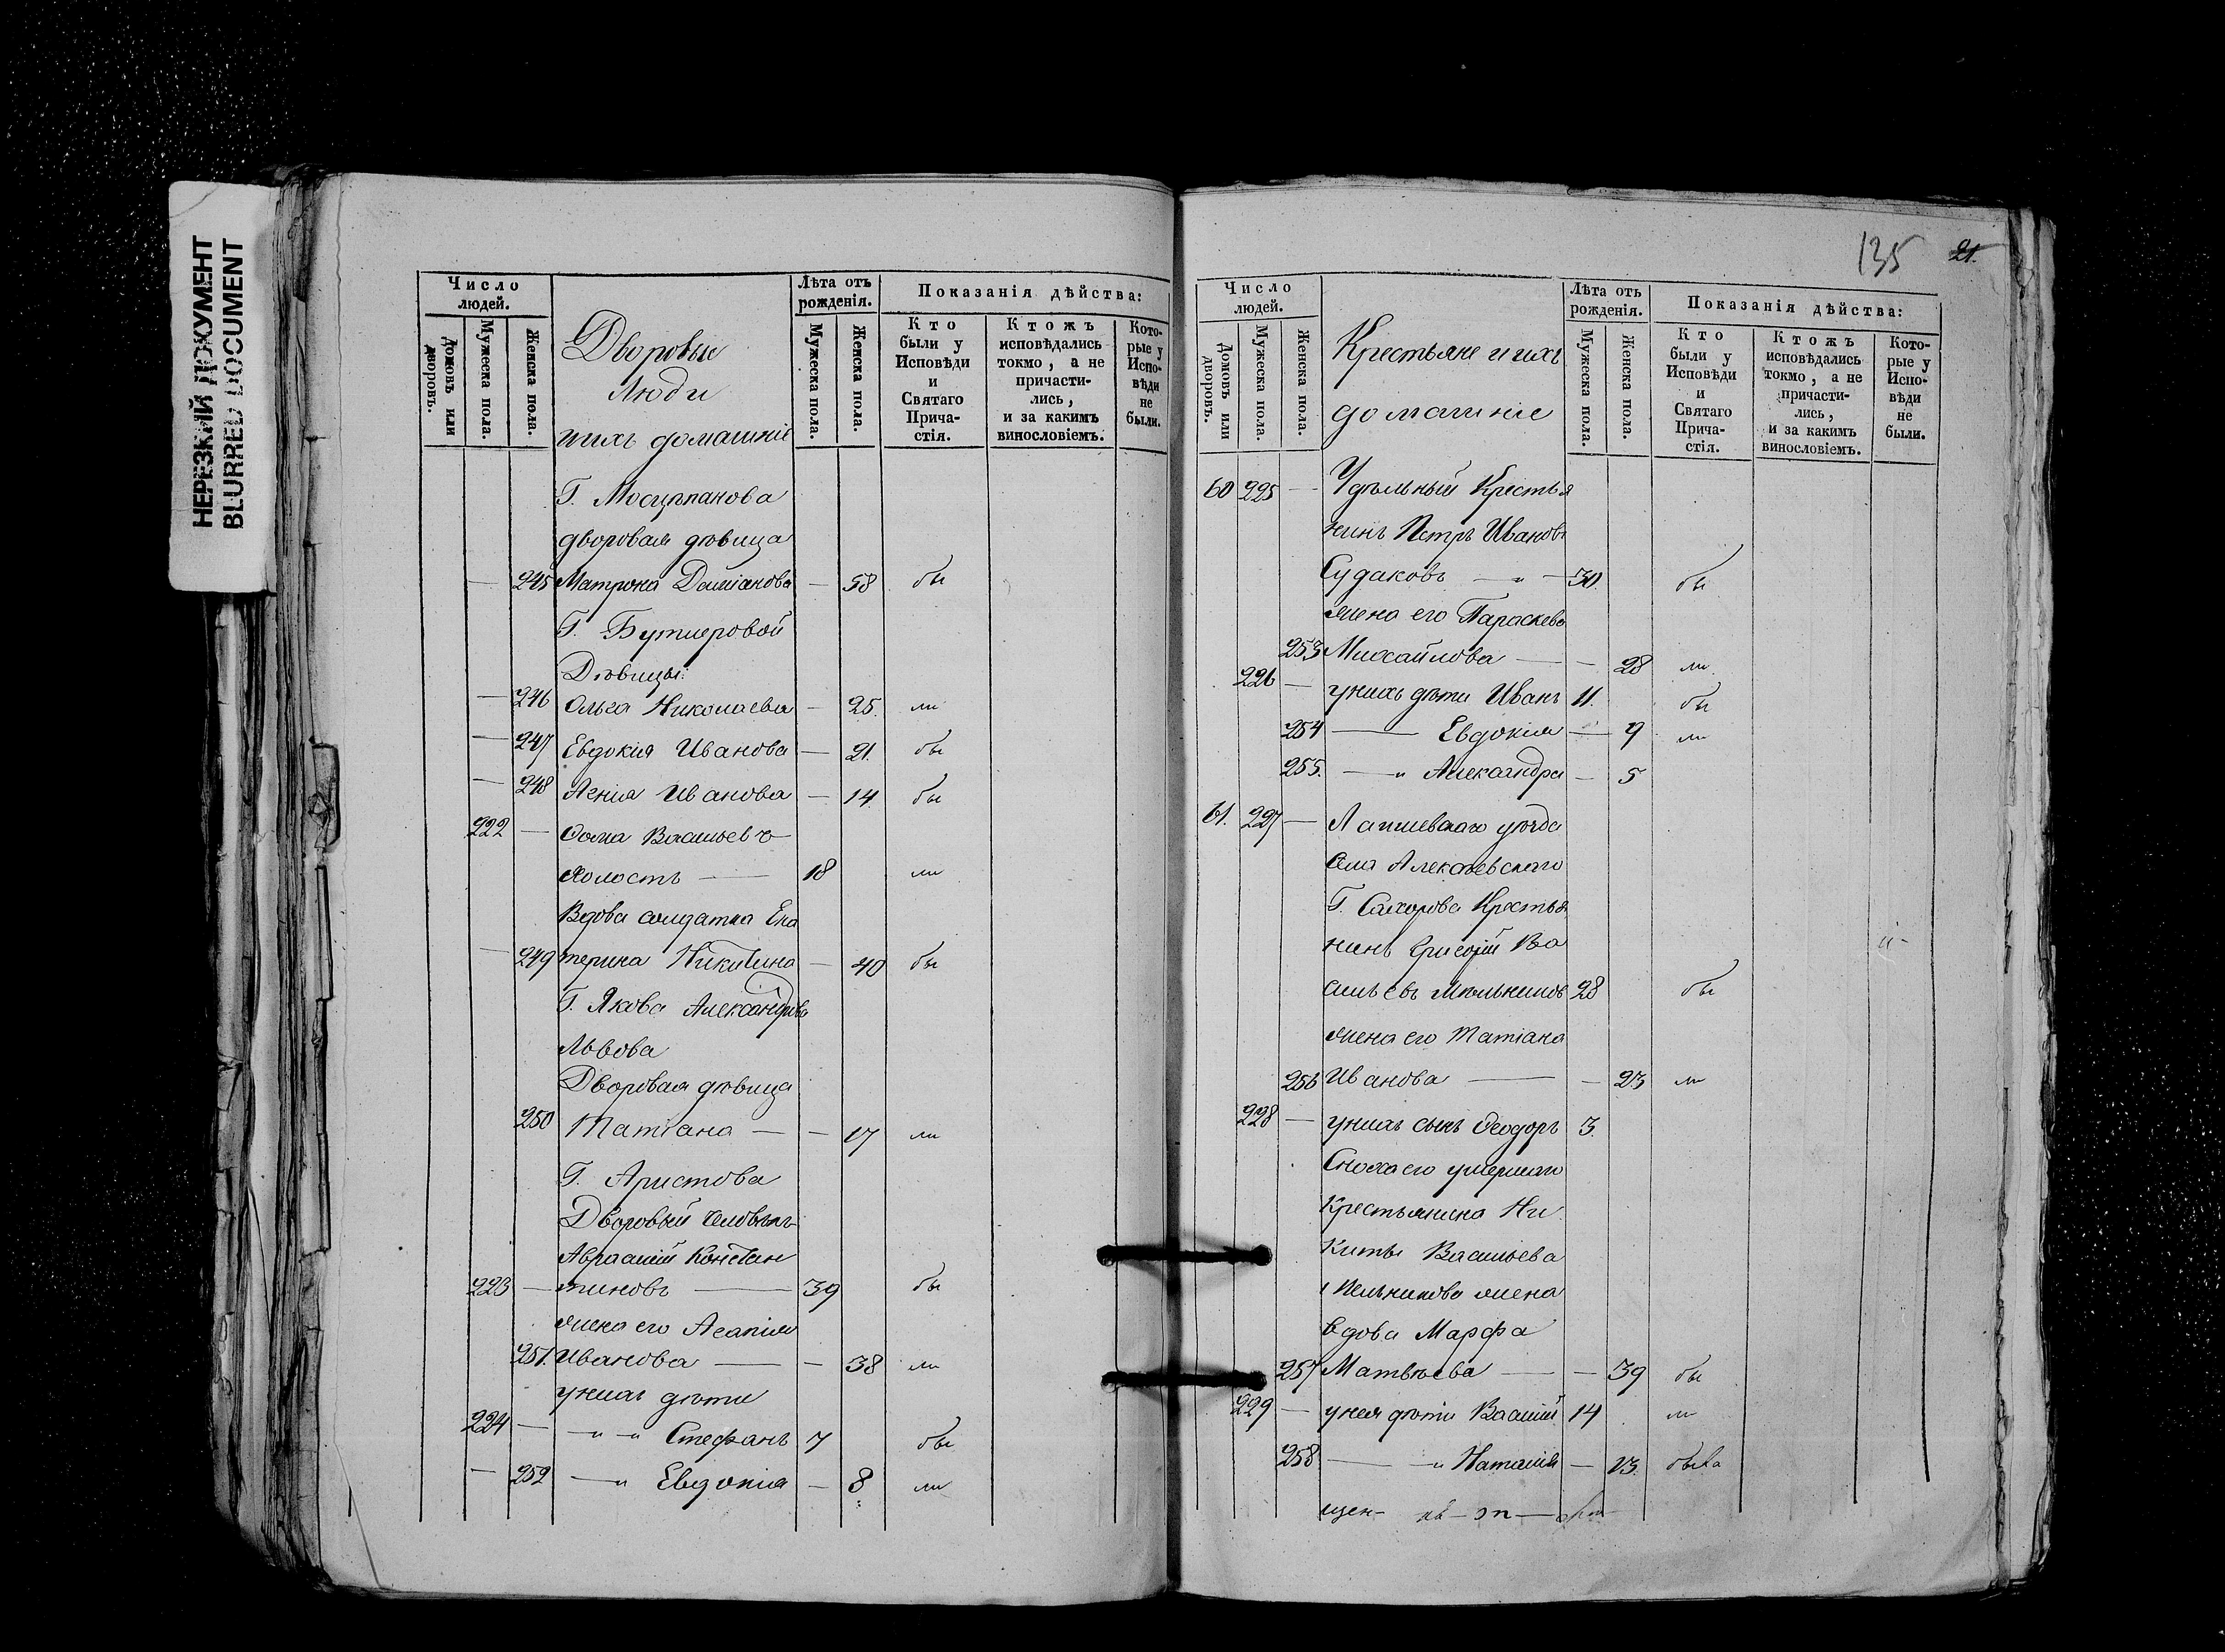 НЕРЕЗКИЙ ДОКУМЕНТ
BLURRED DOCUMENT
Число людей.
Домовъ или дворовъ.
Мужеска пола.
Женска пола.
Дворовые
Люди
и ихъ домашніе
Лѣта отъ рожденія.
Мужеска пола.
Женска пола.
Показанія дѣйства:
Кто были у Исповѣди и Святаго Причастія.
Ктожъ исповѣдались токмо, а не причастились, и за какимъ винословіемъ.
Которые у Исповѣди не были.
дворовая дѣвица
— 245 Матрона Даміанова — 58 бы
Г. Бутлеровой
Дѣвицы:
— 246 Ольга Николаева — 25. ли
— 247 Евдокія Иванова — 21. бы
— 248 Иванова — 14. бы
222 — Ѳома Васильевъ
холостъ — 18 ли
Вдова солдатка Ека
— 249 терина Никитина — 40 бы
Г. Якова Александрова
Львова
Дворовая дѣвица
250 Татіана — — 17 ли
Г. Аристова
Дворовый человѣкъ
Авраамій Констан
223 — тиновъ — 39 бы
жена его Агапія
251. Иванова — — 38 ли
у нихъ дѣти
224 — — „ — „ Стефанъ 7 бы
— 252 — „ Евдокія — 8 ли
135 21.
Число людей.
Домовъ или дворовъ.
Мужеска пола.
Женска пола.
Крестьяне и ихъ
домашніе
Лѣта отъ рожденія.
Мужеска пола.
Женска пола.
Показанія дѣйства:
Кто были у Исповѣди и Святаго Причастія.
Ктожъ исповѣдались токмо, а не причастились, и за какимъ винословіемъ.
Которые у Исповѣди не были.
60 225 — Удѣльный Крестья
нинъ Петръ Ивановъ
Судаковъ — „ — 30. бы
жена его Параскева
253 Михайлова — — 28 ли
226 — у нихъ дѣти Иванъ 11. бы
254 — Евдокія — 9 ли
255. — „ Александра — 5
61. 227 — Лаишевскаго уѣзда
села Алексѣевскаго
Г. Сахарова Крестья
нинъ Григорій Ва
сильевъ Мельниковъ 28 бы
жена его Татіана
256 Иванова — — 23 ли
228 — у нихъ сынъ Ѳеодоръ 3.
Сноха его умершаго
Крестьянина Ни
киты Васильева
Мельникова жена
вдова Марфа
257 Матвѣева — — 39 бы
229 — у нея дѣти Василій 14 ли
258 — „ Наталія — 13. была